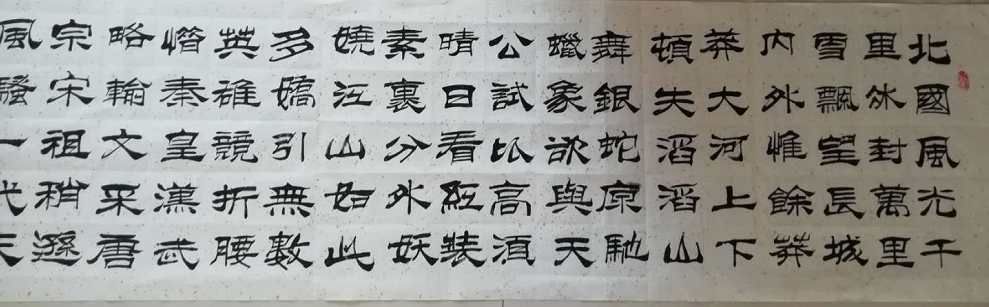 北國風光千
里冰封萬里
雪飄望長城
内外惟餘莽
莽大河上下
頓失滔滔山
舞銀蛇原馳
蠟象欲與天
公試比高須
晴日看紅裝
素裏分外妖
嬈江山如此
多嬌引無數
英雄競折腰
惜秦皇漢武
略輸文采唐
宗宋祖稍遜
風騷一代天